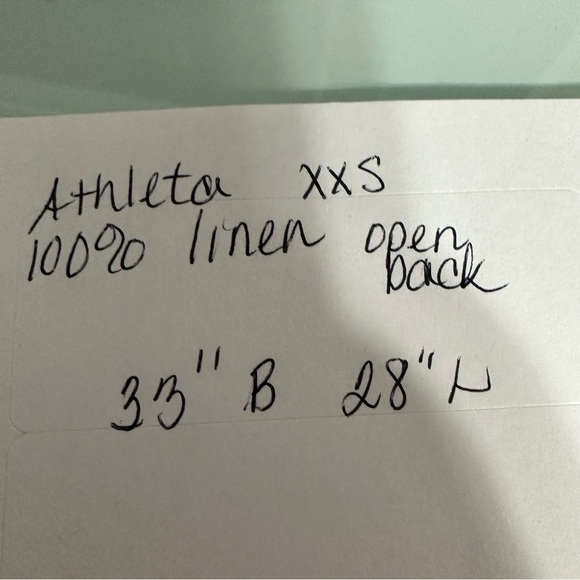 Athleta XXS
100% linen open back
33" B 28" L